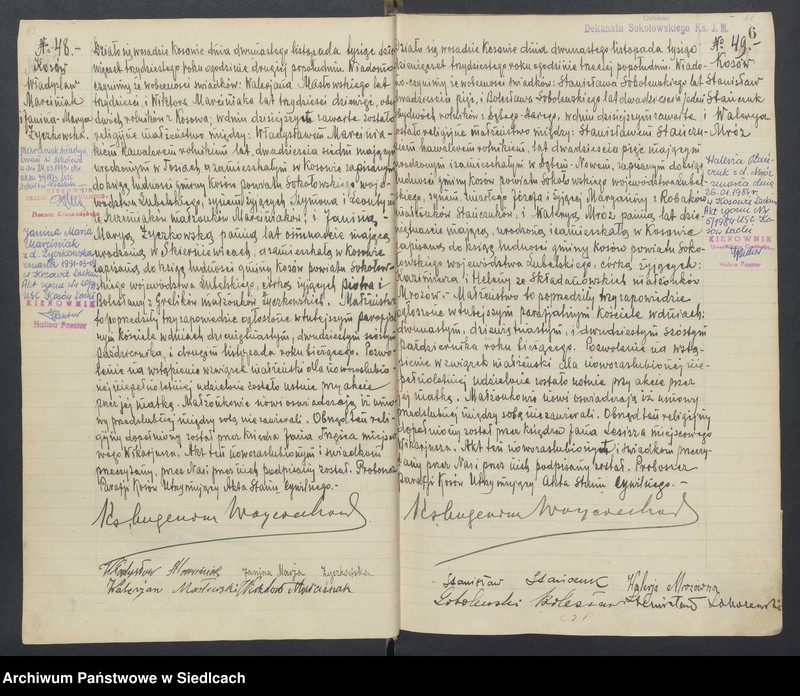 № 48.-
Kosów
Władysław
Marciniak
i Janina-Marya
Zyczkowska.
Janina Maria
Marciniak
z d. Zyczkowska
zmarła
w Kosowie Lackim
Akt zgonu nr
USC Kosów Lacki
KIEROWNIK
Halina Paester
Działo się w osadzie Kosowie dnia dwunastego listopada tysiąc
dziewięćset trzydziestego roku o godzinie drugiej popołudniu. Wiadomo
czynimy że w obecności świadków: Walerjana Masłowskiego lat
trzydzieści, i Wiktora Marciniaka lat trzydzieści dziewięć, oby-
dwóch rolników z Kosowa, w dniu dzisiejszym zawarte zostało
religijne małżeństwo między: Władysławem Marcinia-
kiem kawalerem rolnikiem, lat dwadzieścia siedm mającym
urodzonym w i zamieszkałym w Kosowie zapisanym
do ksiąg ludności gminy Kosów powiatu Sokołowskiego woje-
wództwa Lubelskiego, synem żyjących Szymona i
małżonków Marciniaków; i Janiną-
Maryą Zyczkowską panną lat ośmnaście mającą
urodzoną w Skierniewicach, a zamieszkałą w Kosowie
zapisaną do ksiąg ludności gminy Kosów powiatu Sokołow-
skiego województwa Lubelskiego, córką żyjących Piotra i
małżonków Zyczkowskich. Małżeństwo
to poprzedziły trzy zapowiedzie ogłoszone w tutejszym parafjal-
nym Kościele w dniach: dziewiętnastym, dwudziestym szóstym
Października, i drugim listopada roku bieżącego. Pozwo-
lenie na wstąpienie w związek małżeński dla nowozaślubio-
nej niepełnoletniej udzielone zostało ustnie przy akcie
przez jej matkę. Małżonkowie nowi oświadczają iż umo-
wy przedślubnej między sobą nie zawierali. Obrzęd ten reli-
gijny dopełniony został przez księdza Jana miejsco-
wego Wikarjusza. Akt ten nowozaślubionym i świadkom
przeczytany, przez Nas i przez nich podpisany został. Proboszcz
Parafji Kosów Utrzymujący Akta Stanu Cywilnego.-
Ks. Eugenium
Władysław Marciniak Janina Marja Zyczkowska
Waleryan Masłowski Wiktor Marciniak
Dziekan
Dekanatu Sokołowskiego Ks. J. M.
6
№ 49.-
Kosów
Stanisław
Stańczuk
i Walerya
Mróz
Waleria Stań-
czuk z d. Mróz
zmarła dnia
26.01.1987 r.
w Kosowie Lackim
Akt zgonu Nr
5/1987 USC Ko-
sów Lacki
KIEROWNIK
Halina Paester
Działo się w osadzie Kosowie dnia dwunastego listopada tysiąc
dziewięćset trzydziestego roku o godzinie trzeciej popołudniu. Wiado-
mo czynimy że w obecności świadków: Stanisława Sobolewskiego lat
dwadzieścia pięć, i Bolesława Sobolewskiego lat dwadzieścia jeden
obydwóch rolników z Dębego-Starego, w dniu dzisiejszym zawarte
zostało religijne małżeństwo między: Stanisławem Stańczu-
kiem kawalerem rolnikiem, lat dwadzieścia pięć mającym
urodzonym i zamieszkałym w Dębem-Nowem, zapisanym do ksiąg
ludności gminy Kosów powiatu Sokołowskiego województwa Lubel-
skiego, synem zmarłego Józefa i żyjącej Marjanny z Robaków
małżonków Stańczuków, i Waleryą Mróz panną lat dzie-
więtnaście mającą, urodzoną i zamieszkałą w Kosowie
zapisaną do ksiąg ludności gminy Kosów powiatu Soko-
łowskiego województwa Lubelskiego, córką żyjących:
Kazimierza i Heleny ze Składanowskich małżonków
Mrozów.- Małżeństwo to poprzedziły trzy zapowiedzie
ogłoszone w tutejszym parafjalnym Kościele w dniach:
dwunastym, dziewiętnastym, i dwudziestym szóstym
Października roku bieżącego. Pozwolenie na wstą-
pienie w związek małżeński dla nowozaślubionej nie-
pełnoletniej udzielone zostało ustnie przy akcie przez
jej matkę. Małżonkowie nowi oświadczają iż umowy
przedślubnej między sobą nie zawierali. Obrzęd ten religijny
dopełniony został przez księdza Jana miejscowego
Wikarjusza. Akt ten nowozaślubionym i świadkom przeczy-
tany przez Nas i przez nich podpisany został. Proboszcz
Parafji Kosów Utrzymujący Akta Stanu Cywilnego.-
Ks. Eugenium
Stanisław Stańczuk Walerja Mrozówna
Sobolewski Bolesław Stanisław Sobolewski
Archiwum Państwowe w Siedlcach